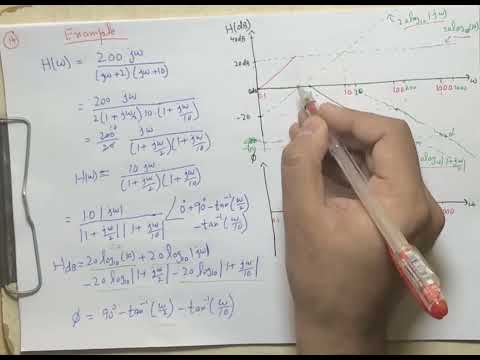 Example
H(ω) = 200 jω / (jω+2)(jω+10)
= 200 jω / 2(1+jω/2)10.(1+jω/10)
= 200 10 / 20 jω / (1+jω/2)(1+jω/10)
H(ω) = 10 jω / (1+jω/2)(1+jω/10)
= 10 |jω| / |1+jω/2| |1+jω/10| ∠ 0°+90°-tan⁻¹(ω/2) -tan⁻¹(ω/10)
H dB = 20 log₁₀(10) + 20 log₁₀|jω|
-20 log₁₀|1+jω/2| -20 log₁₀|1+jω/10|
φ = 90° - tan⁻¹(ω/2) - tan⁻¹(ω/10)
H(dB)
40dB
20dB
-20
φ
20 log₁₀|jω|
20 log₁₀(10)
0.1
10
20
100
1000
ω